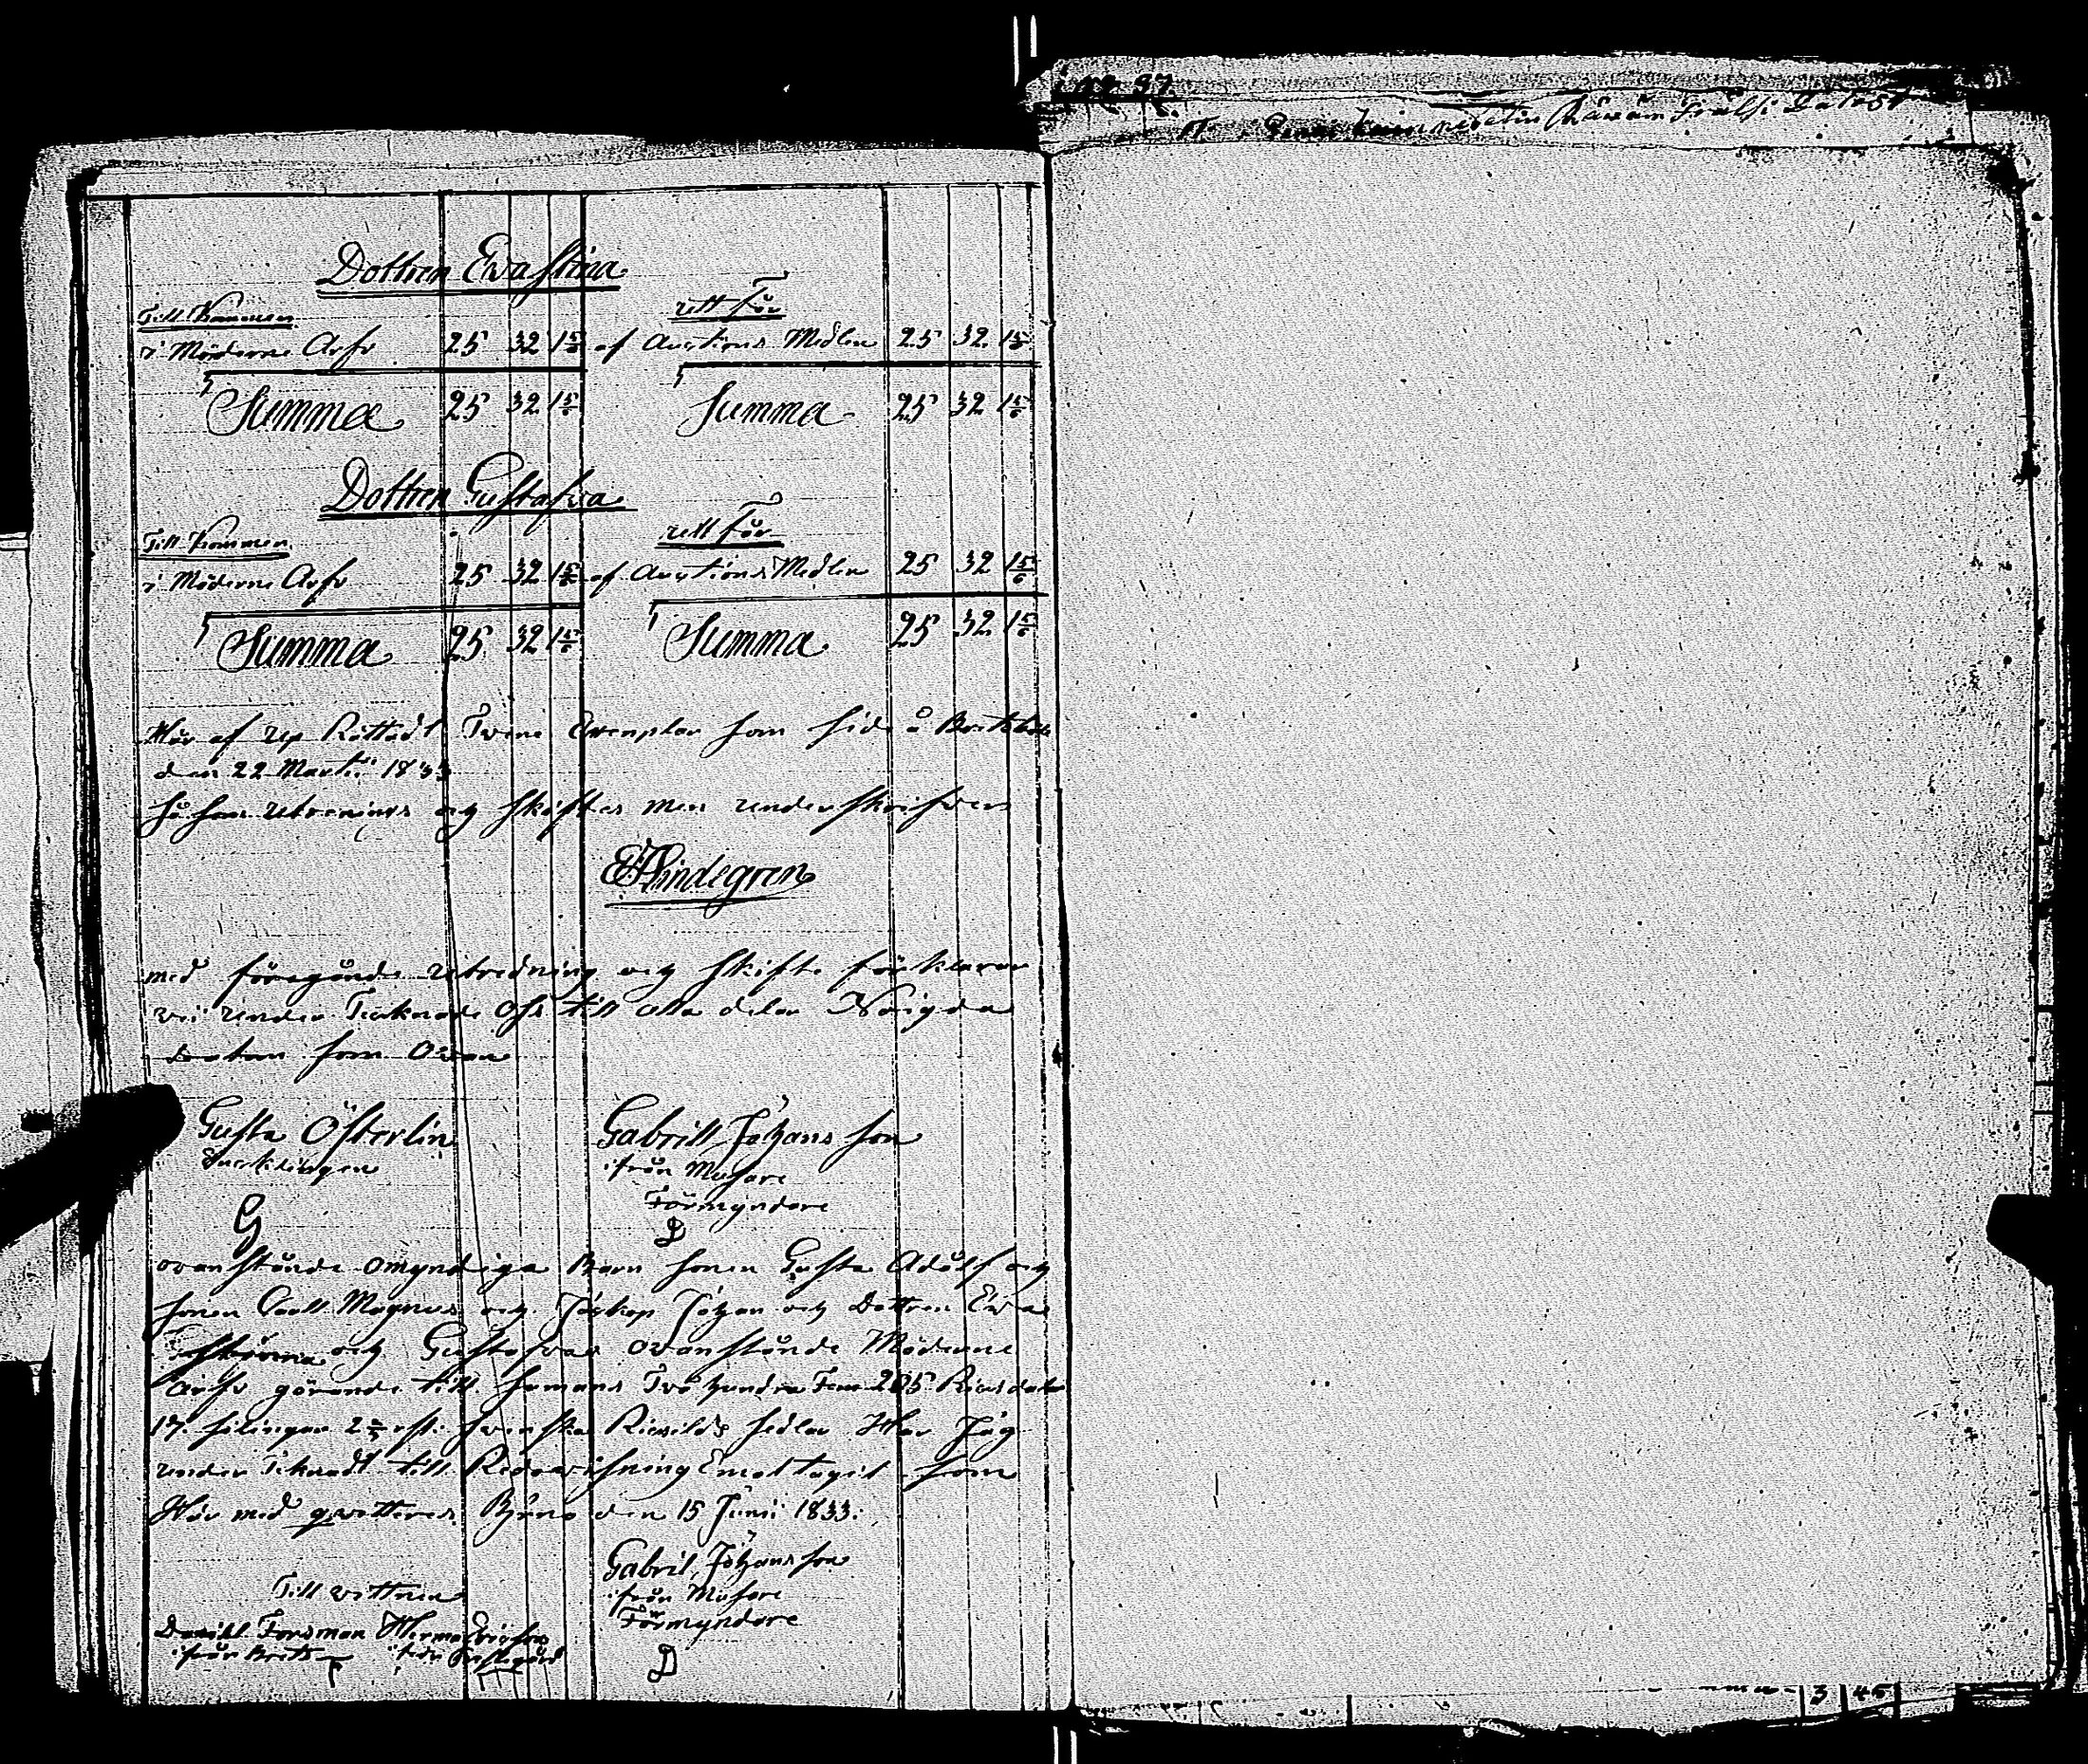 Dottren Eva Stina
Till Kommer rett För
i Möderne Arfv 25 32 1 5/6 af Auctions Medlen 25 32 1 5/6
Summa 25 32 1 5/6 Summa 25 32 1 5/6
Dottren Gustafva
Till Kommer rett För
i Möderne Arfv 25 32 1 5/6 af Auctions Medlen 25 32 1 5/6
Summa 25 32 1 5/6 Summa 25 32 1 5/6
Här af Up Rättadt Tvene Exemplar som skide å
den 22 Martii 1833
så som utrenings og skiftes men underskrifver
Hindegren
med föregånde utredning og skifte förklarar
vi under Tecknade Oss till alla delar Nöigda
datum som Ovan
Gusta Österlin Gabrill Johans son
Encklingen ifrån Musare
Förmyndare
G D
ovan stånde omyndiga Barn sonen Gusta Adolf og
sonen Carll Magnus og Jackop Johan och Dottren Eva
og Gustafvas ovanstånde Möderne
Arfv görande till samans Två hundra Fem 205 Ricksdaler
17 skilingar 2 rst. svenska Ricksilds sedlar Har Jag
under Teknadt till Redovisning Emottagit som
Här med qvitteras Byrnö den 15 Junii 1833.
Gabril Johans son
Till vittnen ifrån Musare
Daniel Forsman Herman Ericsson Förmyndare
ifrån ifrån
D
3 45